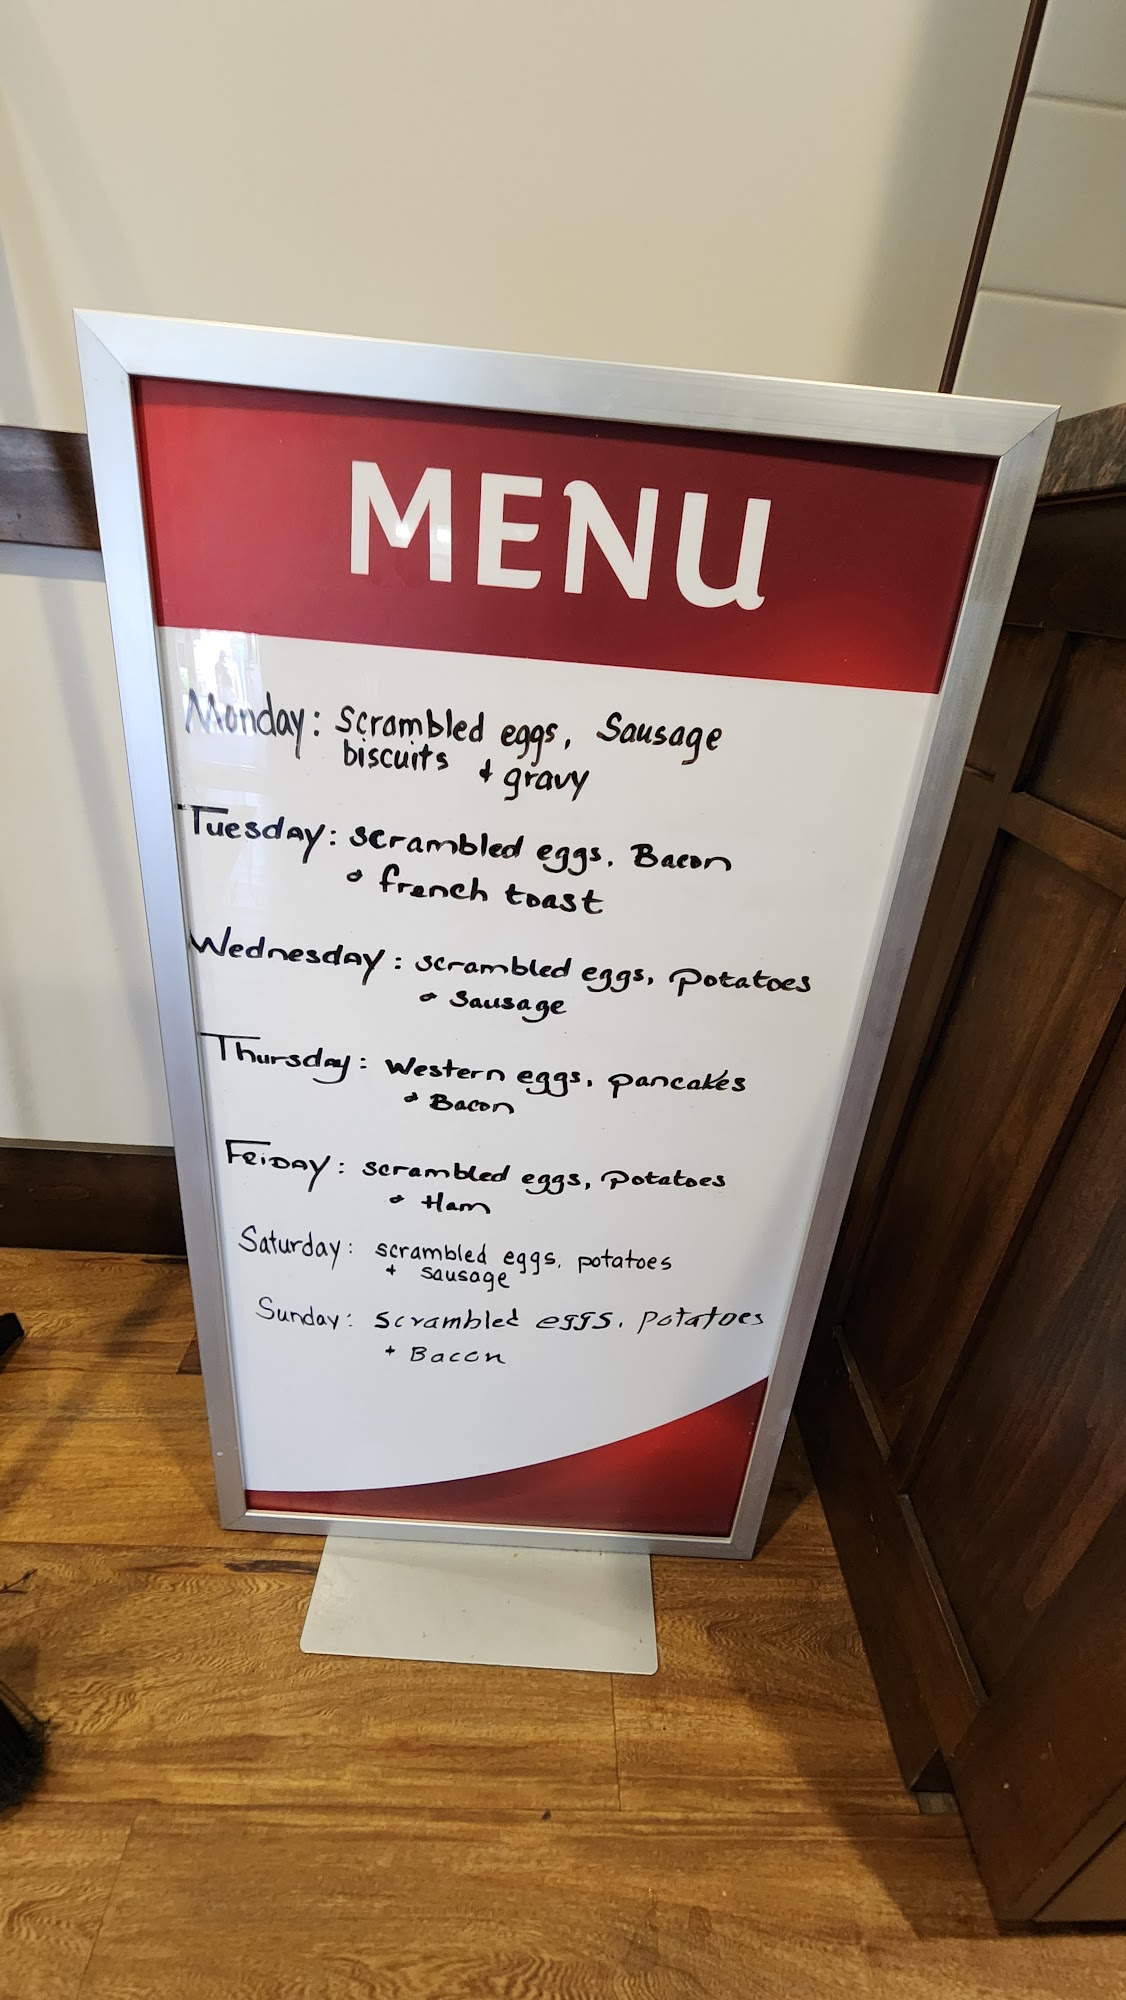 MENU
Monday: Scrambled eggs, Sausage
biscuits + gravy
Tuesday: scrambled eggs, Bacon
& french toast
Wednesday: scrambled eggs, potatoes
& Sausage
Thursday: Western eggs, pancakes
& Bacon
FRIDAY: scrambled eggs, potatoes
& Ham
Saturday: scrambled eggs, potatoes
+ sausage
Sunday: scrambled eggs, potatoes
+ Bacon